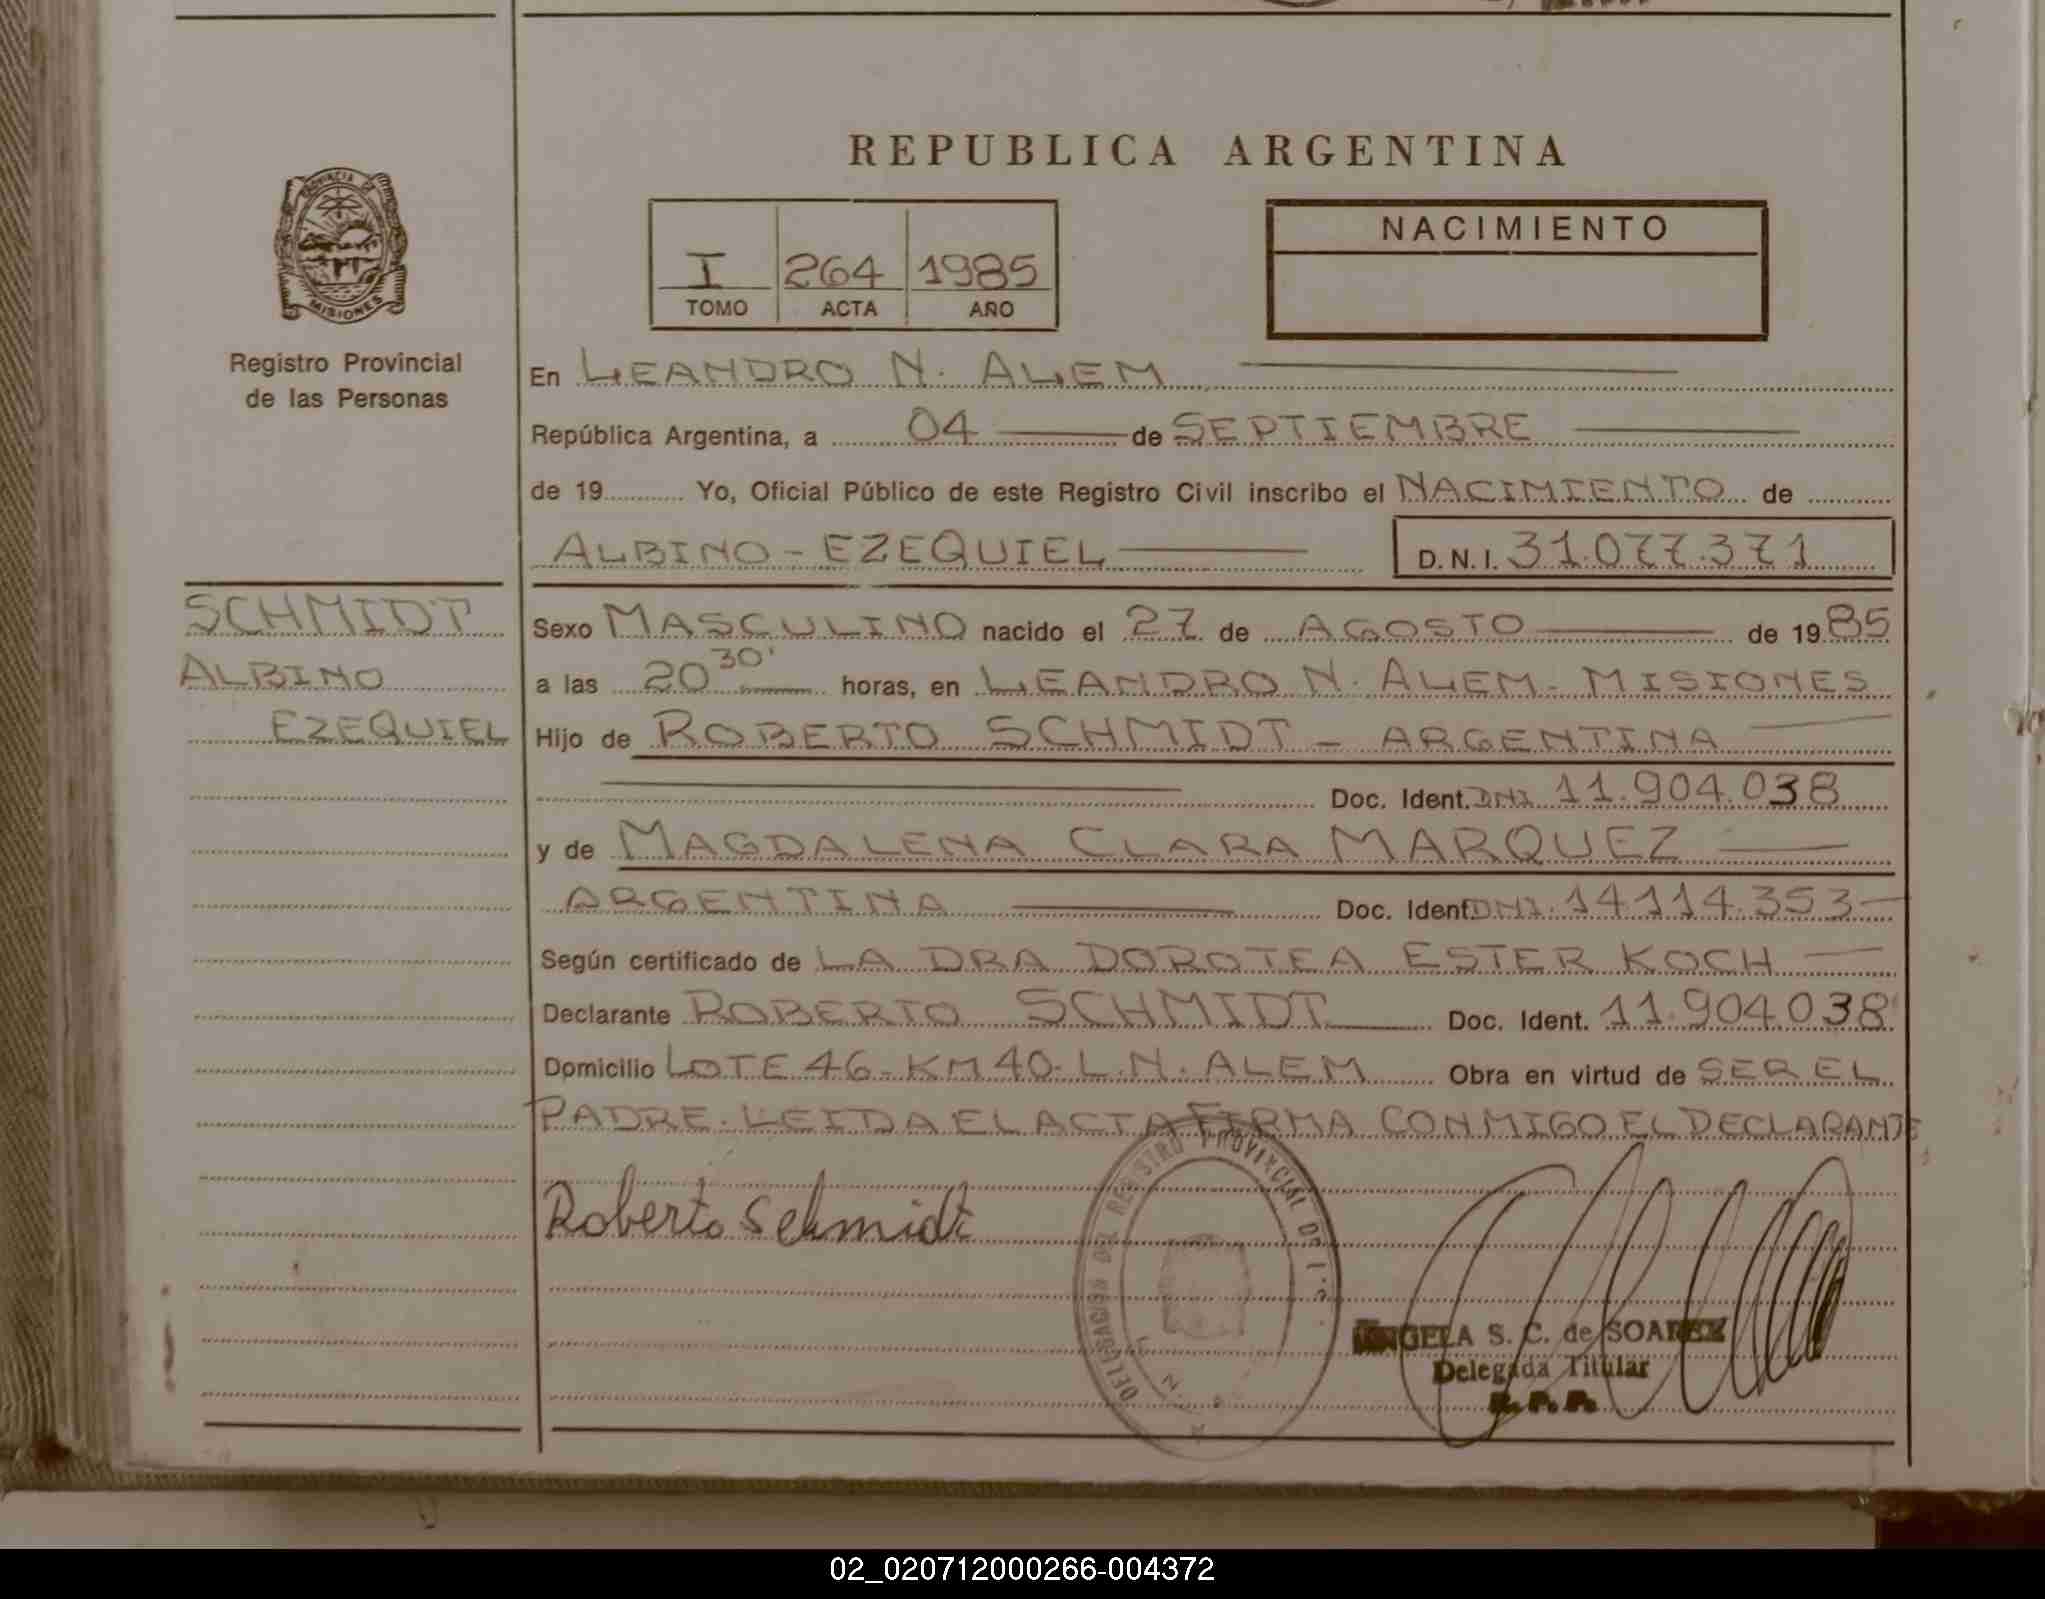 REPUBLICA ARGENTINA
PROVINCIA DE
MISIONES
Registro Provincial
de las Personas
I 264 1985
TOMO ACTA AÑO
NACIMIENTO
En LEANDRO N. ALEM
República Argentina, a 04 de SEPTIEMBRE
de 19 Yo, Oficial Público de este Registro Civil inscribo el NACIMIENTO de
ALBINO - EZEQUIEL D.N.I. 31.077.371
SCHMIDT
ALBINO
EZEQUIEL
Sexo MASCULINO nacido el 27 de AGOSTO de 1985
a las 20 30' horas, en LEANDRO N. ALEM - MISIONES
Hijo de ROBERTO SCHMIDT - ARGENTINA
Doc. Ident. DNI 11.904.038
y de MAGDALENA CLARA MARQUEZ
ARGENTINA Doc. Ident. DNI. 14.114.353
Según certificado de LA DRA DOROTEA ESTER KOCH
Declarante ROBERTO SCHMIDT Doc. Ident. 11.904.038
Domicilio LOTE 46 - KM 40 - L.N. ALEM Obra en virtud de SER EL
PADRE. LEIDA EL ACTA FIRMA CONMIGO EL DECLARANTE
Roberto Schmidt
DELEGACION DEL REGISTRO PROVINCIAL DE
ANGELA S. C. de SOAREZ
Delegada Titular
R. P. P.
02_020712000266-004372